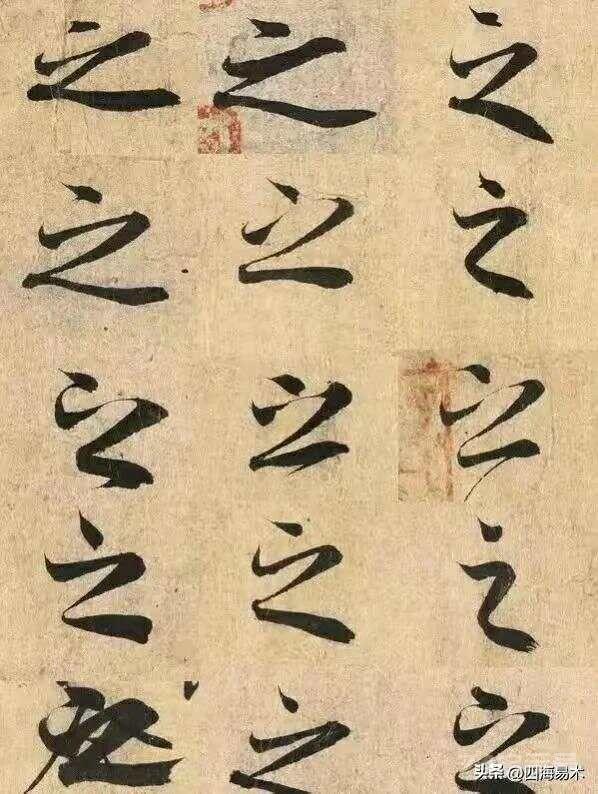 之 之 之
之 之 之
之 之 之
之 之 之
之 之
头条 @四海易木